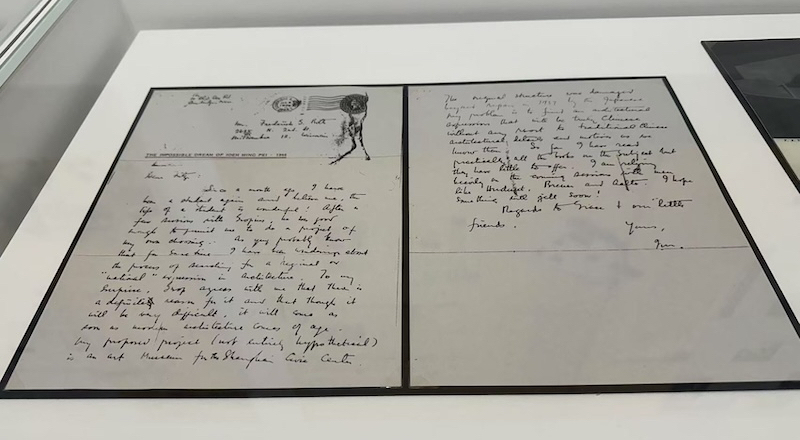 Mr. Frederick S. Roth
Milwaukee
THE IMPOSSIBLE DREAM OF IEOH MING PEI - 1946
Dear Fritz,
Since a month ago, I have
been a student again and believe me, the
life of a student is wonderful. After a
few sessions with Gropius, he was good
enough to permit me to do a project of
my own choosing. As you probably know
that for some time I have been wondering about
the process of searching for a regional or
"national" expression in architecture. To my
surprise, Grop agrees with me that there is
a definite reason for it and that though it
will be very difficult, it will come as
soon as modern architecture comes of age.
My proposed project (not entirely hypothetical)
is an art Museum for the Shanghai Civic Center.
The original structure was damaged
beyond repair in by the Japanese
My problem is to find an architectural
expression that will be truly Chinese
without any resort to traditional Chinese
architectural details and motives as we
know them. So far I have read
practically all the books on the subject but
they have little to offer. I am relying
heavily on the coming sessions with men
like Hudnut, Breuer and Aalto. I hope
something will gell soon!
Regards to & our little
friends.
Yours,